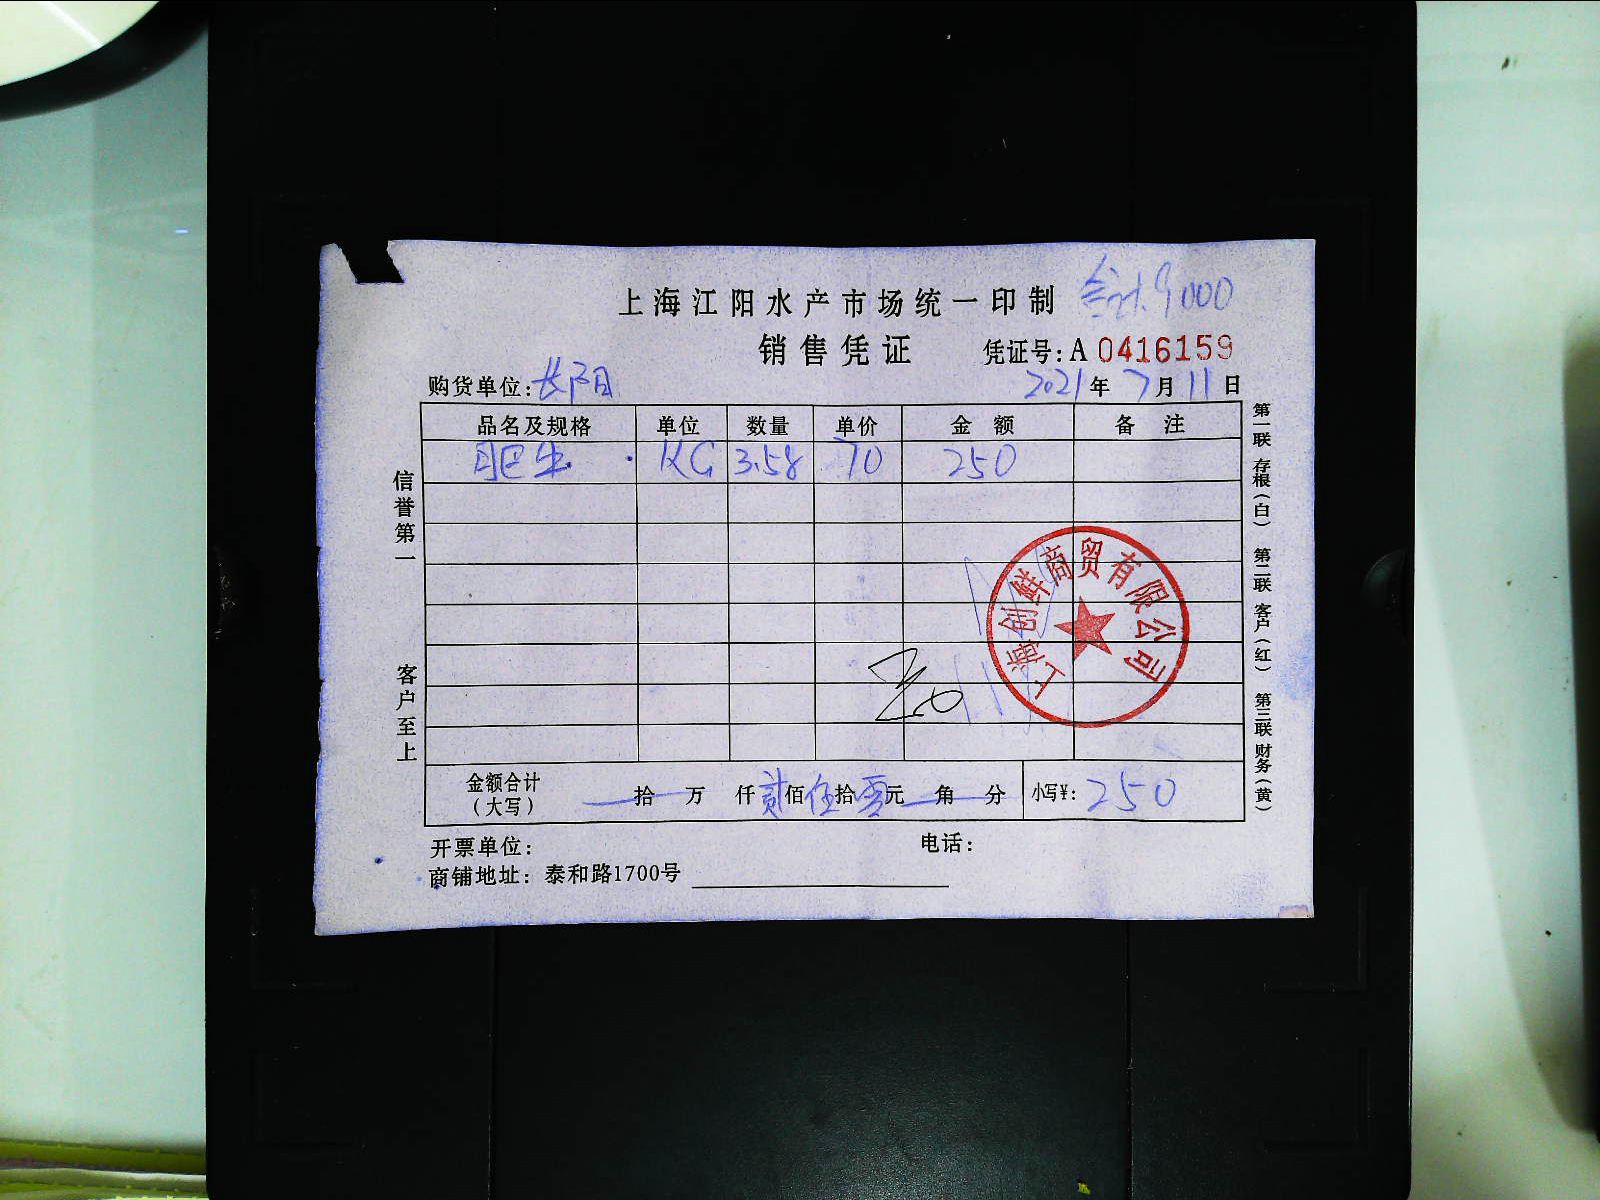 上海江阳水产市场统一印制 合计9000
销售凭证 凭证号:A 0416159
购货单位:长阳 2021年7月11日
品名及规格 单位 数量 单价 金额 备注
KG 3.58 70 250
信誉第一
客户至上
上海创鲜商贸有限公司
金额合计(大写) 拾 万 仟 贰佰 伍拾 零元 角 分 小写¥: 250
开票单位: 电话:
商铺地址: 泰和路1700号
第一联 存根(白) 第二联 客户(红) 第三联 财务(黄)